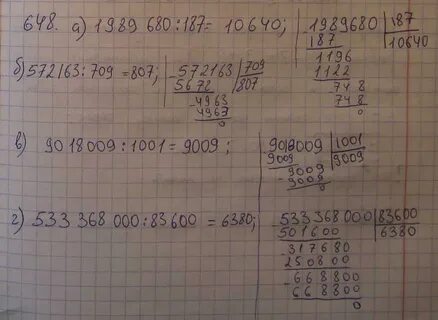 648. а) 1989 680:187= 10640;
1989680 187
187 10640
1196
1122
748
748
0
б) 572163:709 =807;
572163 709
5672 807
4963
4963
0
в) 9018009:1001= 9009;
9018009 1001
9009 9009
9009
9009
0
г) 533 368 000:83600 = 6380;
533 368 000 83600
501600 6380
317680
250800
668800
668800
0